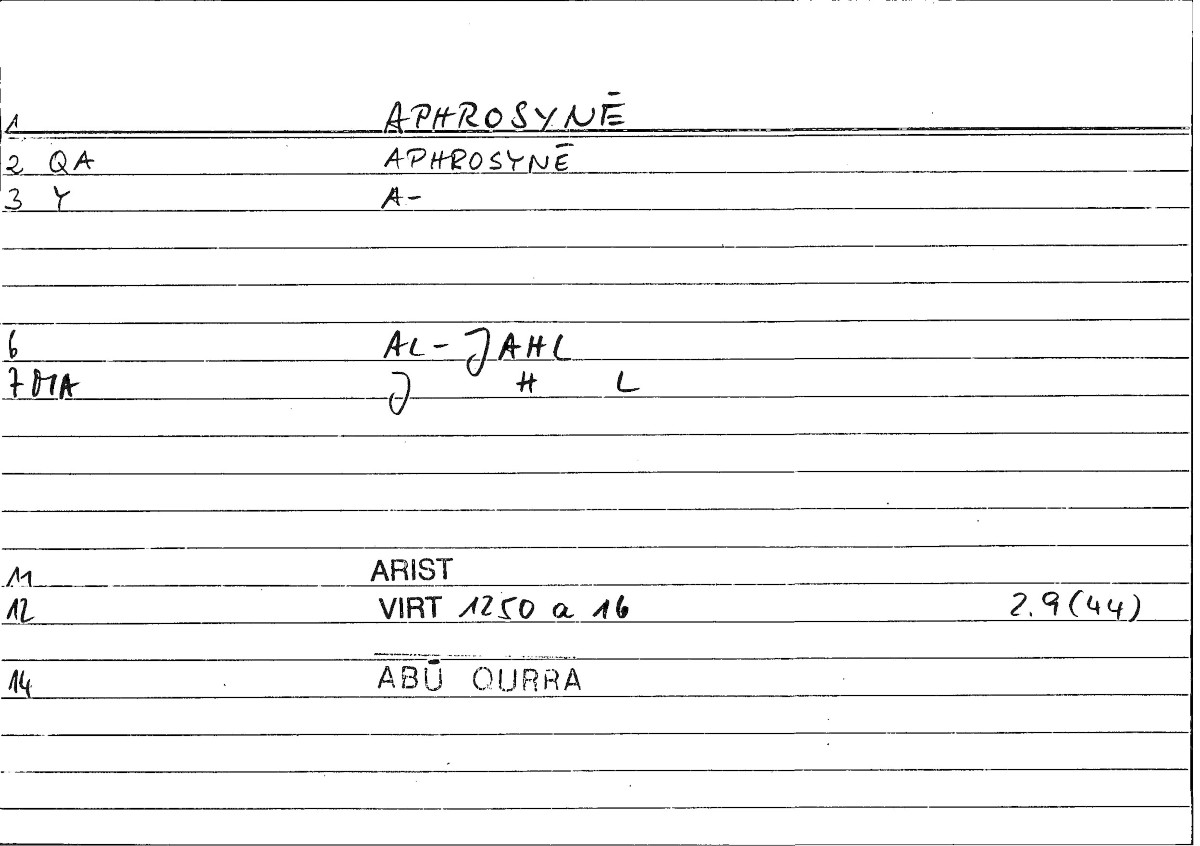 1 APHROSYNĒ
2 QA APHROSYNĒ
3 Y A-
6 AL-JAHL
7 MA J H L
11 ARIST
12 VIRT 1250 a 16 2.9(44)
14 ABŪ QURRA